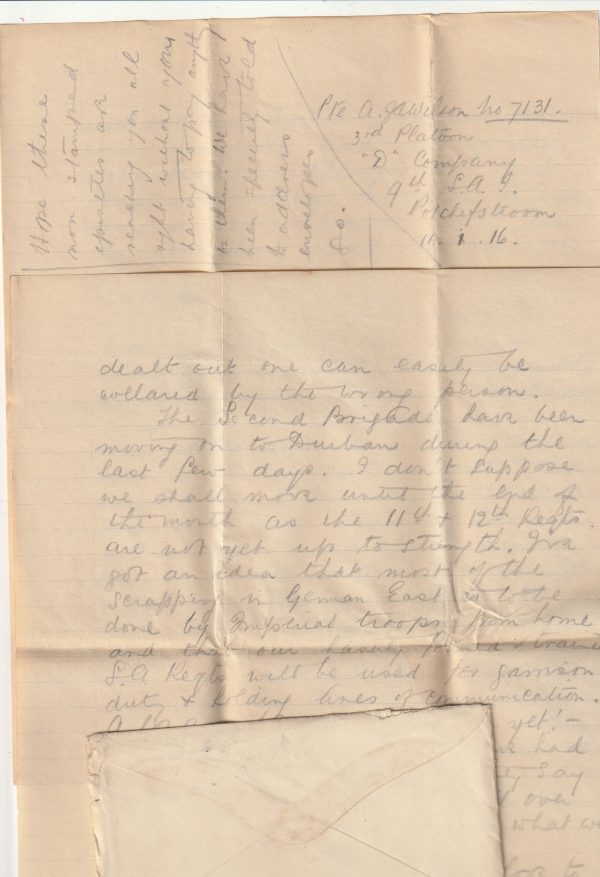 Hope these
non stamped
epistles are
reaching you all
right without your
having to pay anyth
on them. We have
been specially told
to address
envelopes
so.
Pte A. J. Wilson No 7131.
3rd Platoon
"D" Company
9th S.A.I.
Potchefstroom
11. 1. 16.
dealt out one can easily be
collared by the wrong person.
The Second Brigade have been
moving on to Durban during the
last few days. I don't suppose
we shall move until the end of
the month as the 11th & 12th Regts.
are not yet up to strength. I've
got an idea that most of the
scrapping in German East is to be
done by Imperial troops from home
and that our hastily & train
S.A Regts will be used for garrison
duty & holding lines of communication.
yet! -
had
say
over
what we
to